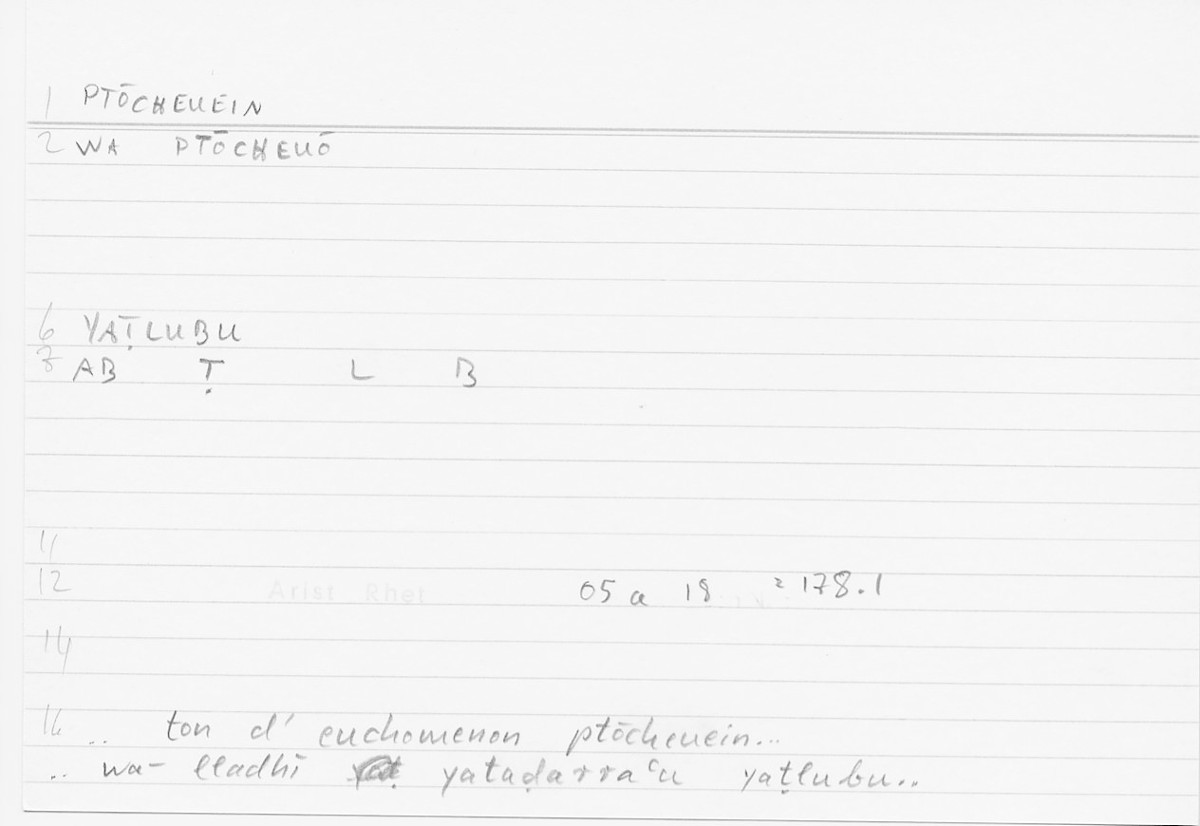 1 PTŌCHEUEIN
2 WA PTŌCHEUŌ
6 YAṬLUBU
7 AB Ṭ L B
11
12 Arist Rhet 05 a 18 = 178.1
14
16 .. ton d' euchomenon ptōcheuein...
.. wa- lladhī yataḍarraʿu yaṭlubu..